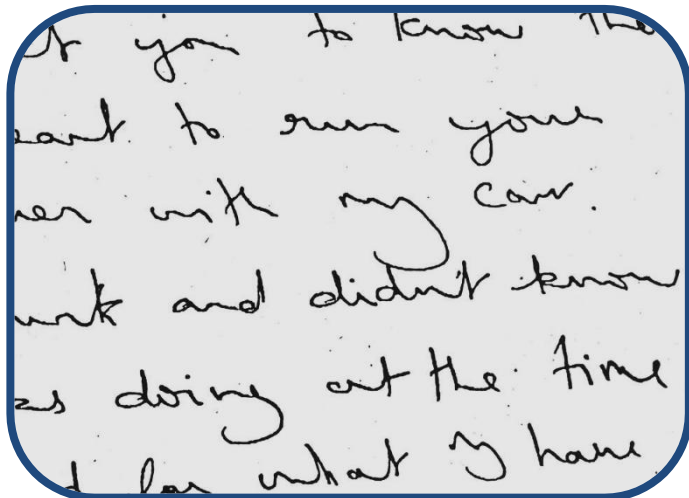 you to know the
to run your
with my car.
and didn't know
doing at the time
what I have